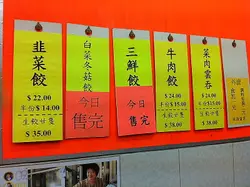 韮菜餃
$22.00
半份$14.00
生餃廿隻
$35.00
白菜冬菇餃
今日
售完
三鮮餃
今日
售完
牛肉餃
$24.00
半份$15.00
生餃廿隻
$38.00
菜肉雲吞
$24.00
半份$15.00
$38.00